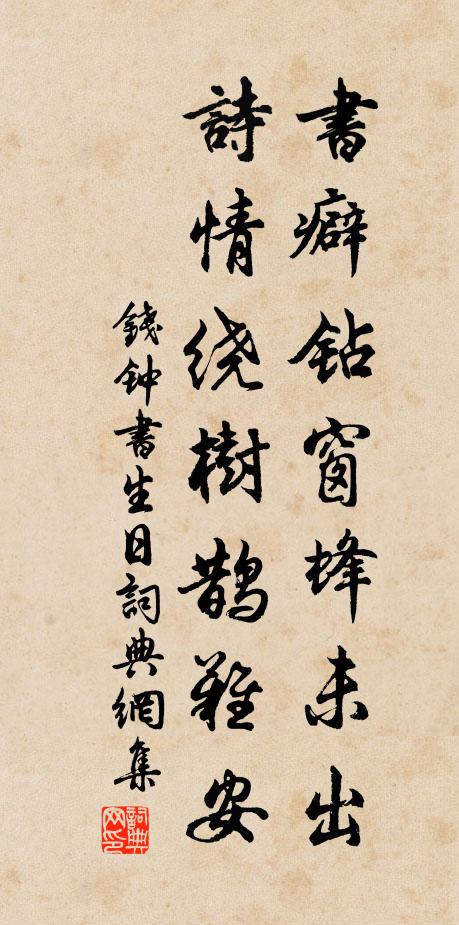 書癖鉆窗蜂未出
詩情绕樹鹊難安
錢钟書生日詞典網集
詞典网印